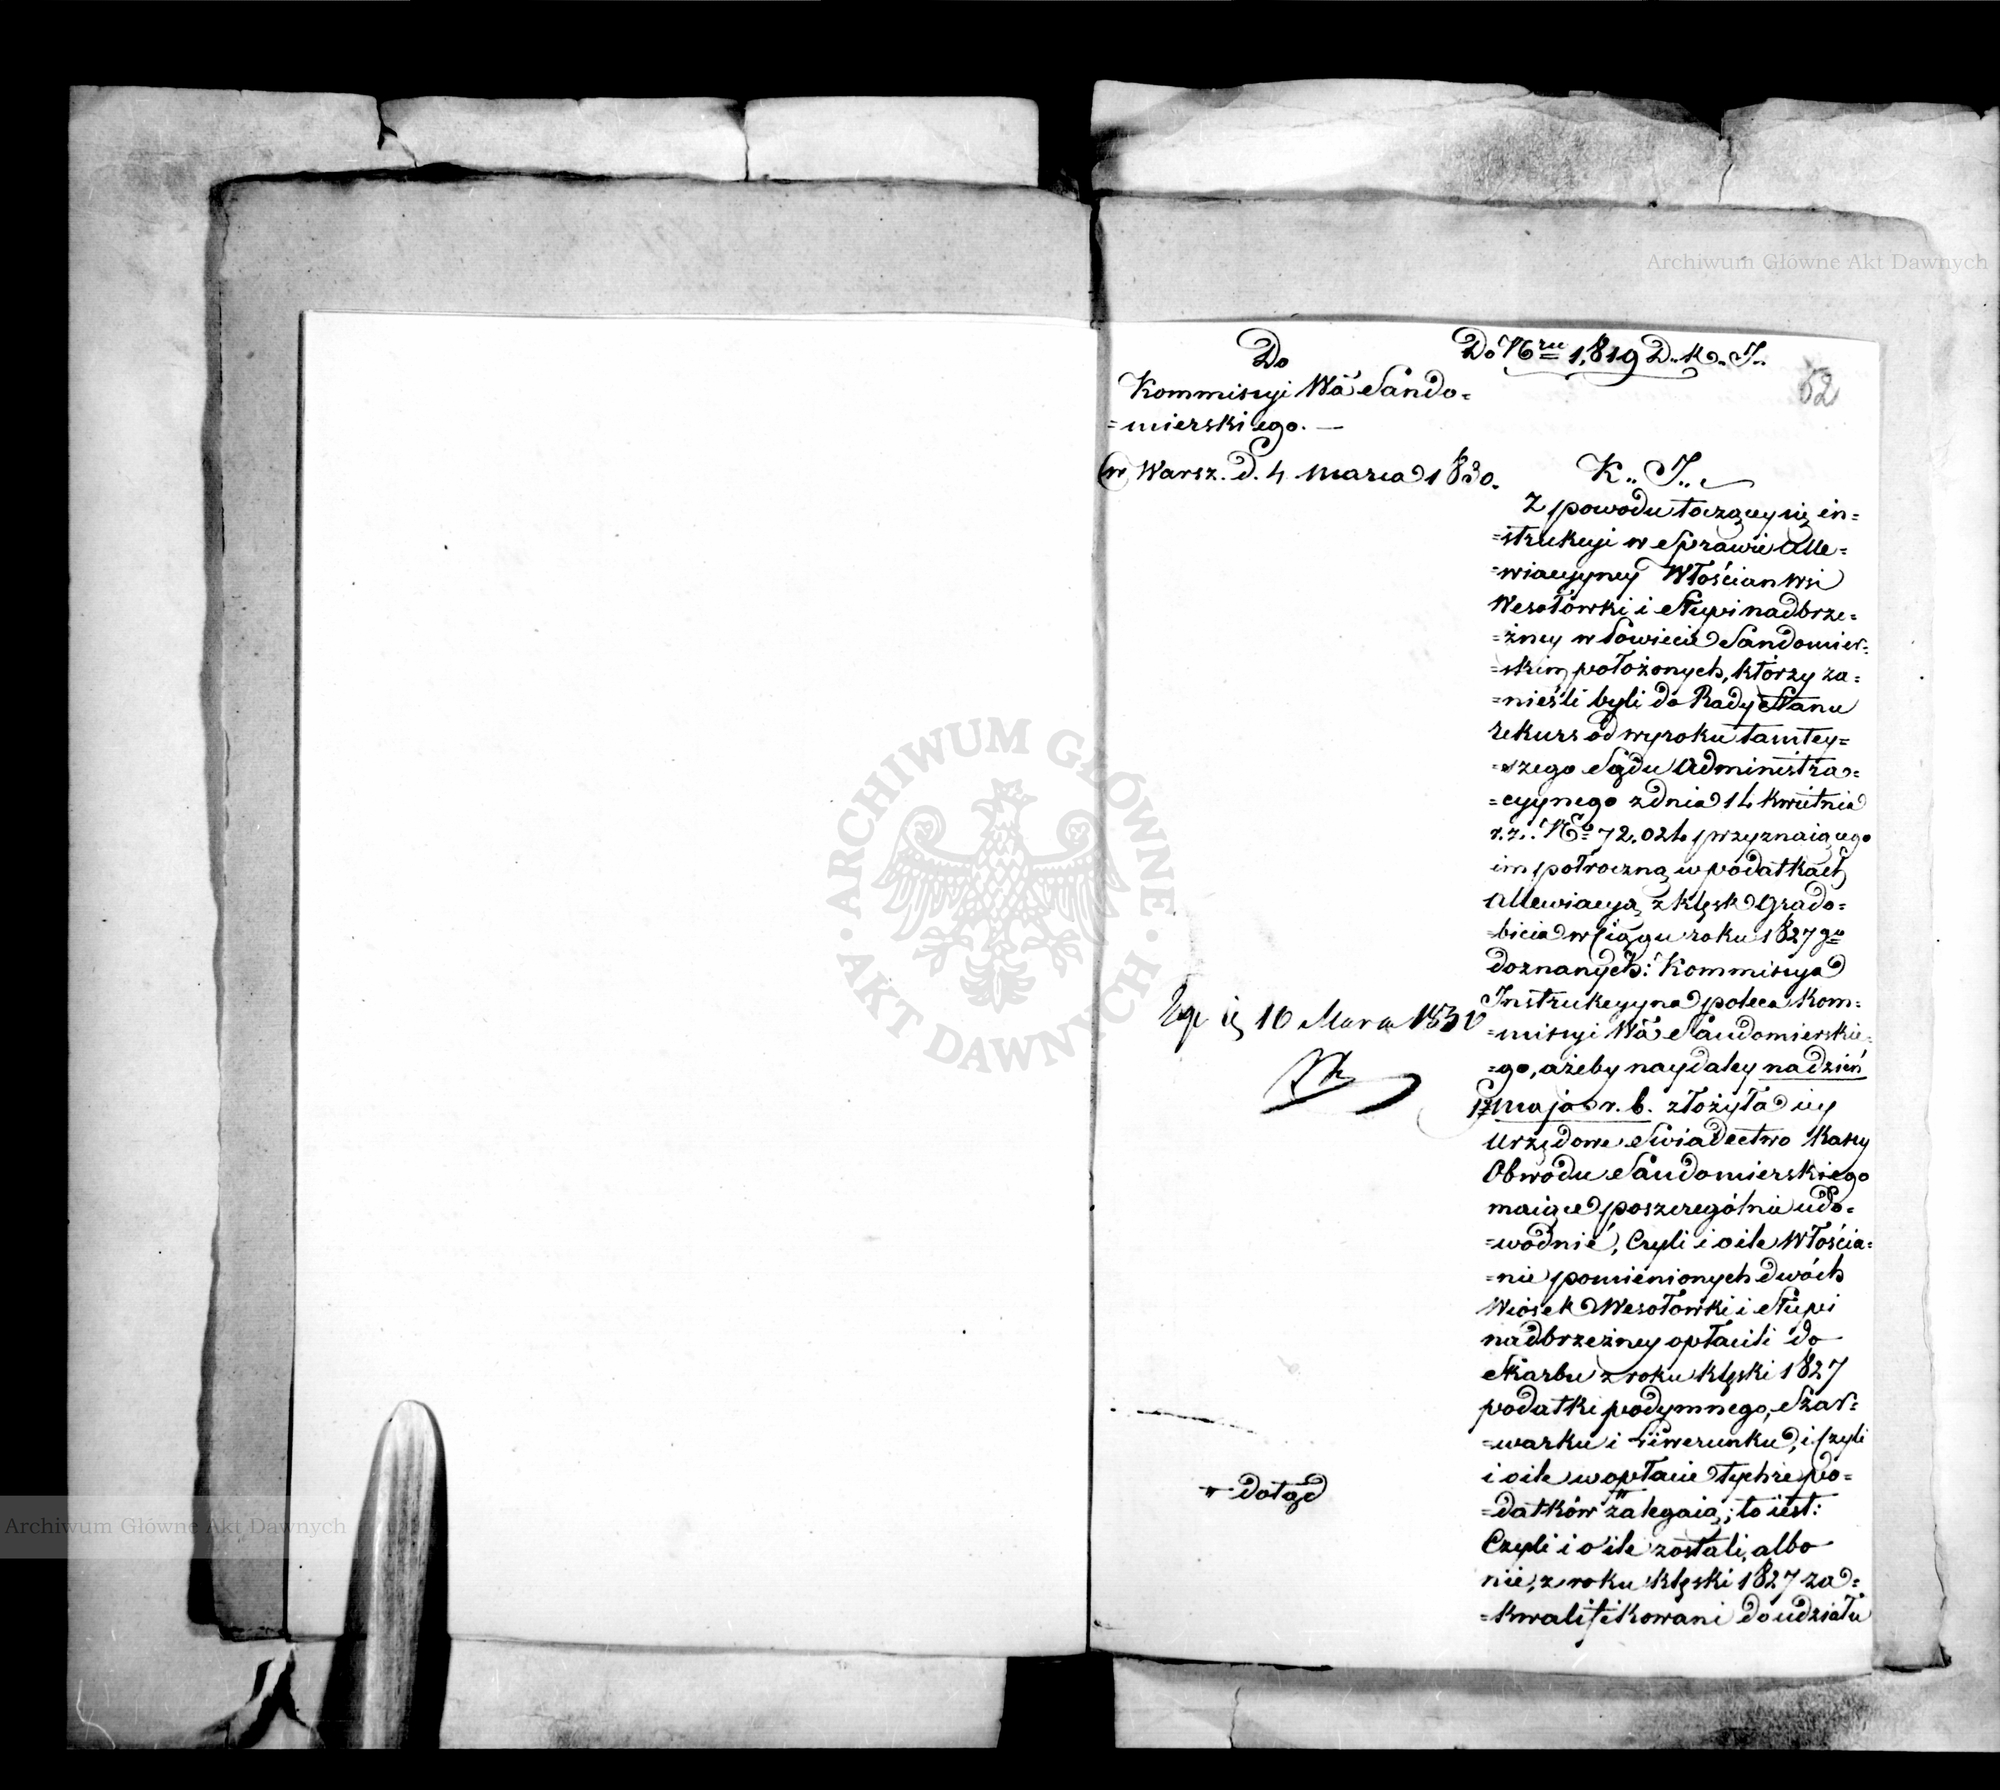 Do
Kommissyi Wa Sando=
=mierskiego. —
w Warsz. d. 4 Marca 1830.
Do Nru 1,819 D. K. I.
52
K.. I..
Z powodu toczącey się in=
=strukcyi w Sprawie Alle=
=wiacyyney Włościan wsi
Wesołowki i Słupi nadbrze=
=żney w Powiecie Sandomier=
=skim położonych, którzy za=
=nieśli byli do Rady Stanu
rekurs od wyroku tamtey=
=szego Sądu Administra=
=cyynego z dnia 14 kwietnia
r. z. No 72,024 przyznaiącego
im półroczną w podatkach
Allewiacyą z klęsk Grado=
=bicia w ciągu roku 1827go
doznanych: Kommissya
Instrukcyyna poleca Kom=
=missyi Wa Sandomierskie=
=go, ażeby naydaley na dzień
17 maja r. b. złożyła iey
Urzędowe Swiadectwo Kassy
Obwodu Sandomierskiego
maiące poszczególnie udo=
=wodnić, Czyli i o ile Włościa=
=nie pomienionych dwóch
Wiosek Wesołowki i Słupi
nadbrzeżney opłacili do
Skarbu z roku klęski 1827
podatki podymnego, Szar=
=warku i Liwerunku, i Czyli
i o ile w opłacie tychże po=
=datków zalegaią; to iest:
Czyli i o ile zostali, albo
nie, z roku klęski 1827 za=
=kwalifikowani do udziału
10 Marca 1830
dotąd
ARCHIWUM GŁÓWNE
AKT DAWNYCH
Archiwum Główne Akt Dawnych
Archiwum Główne Akt Dawnych